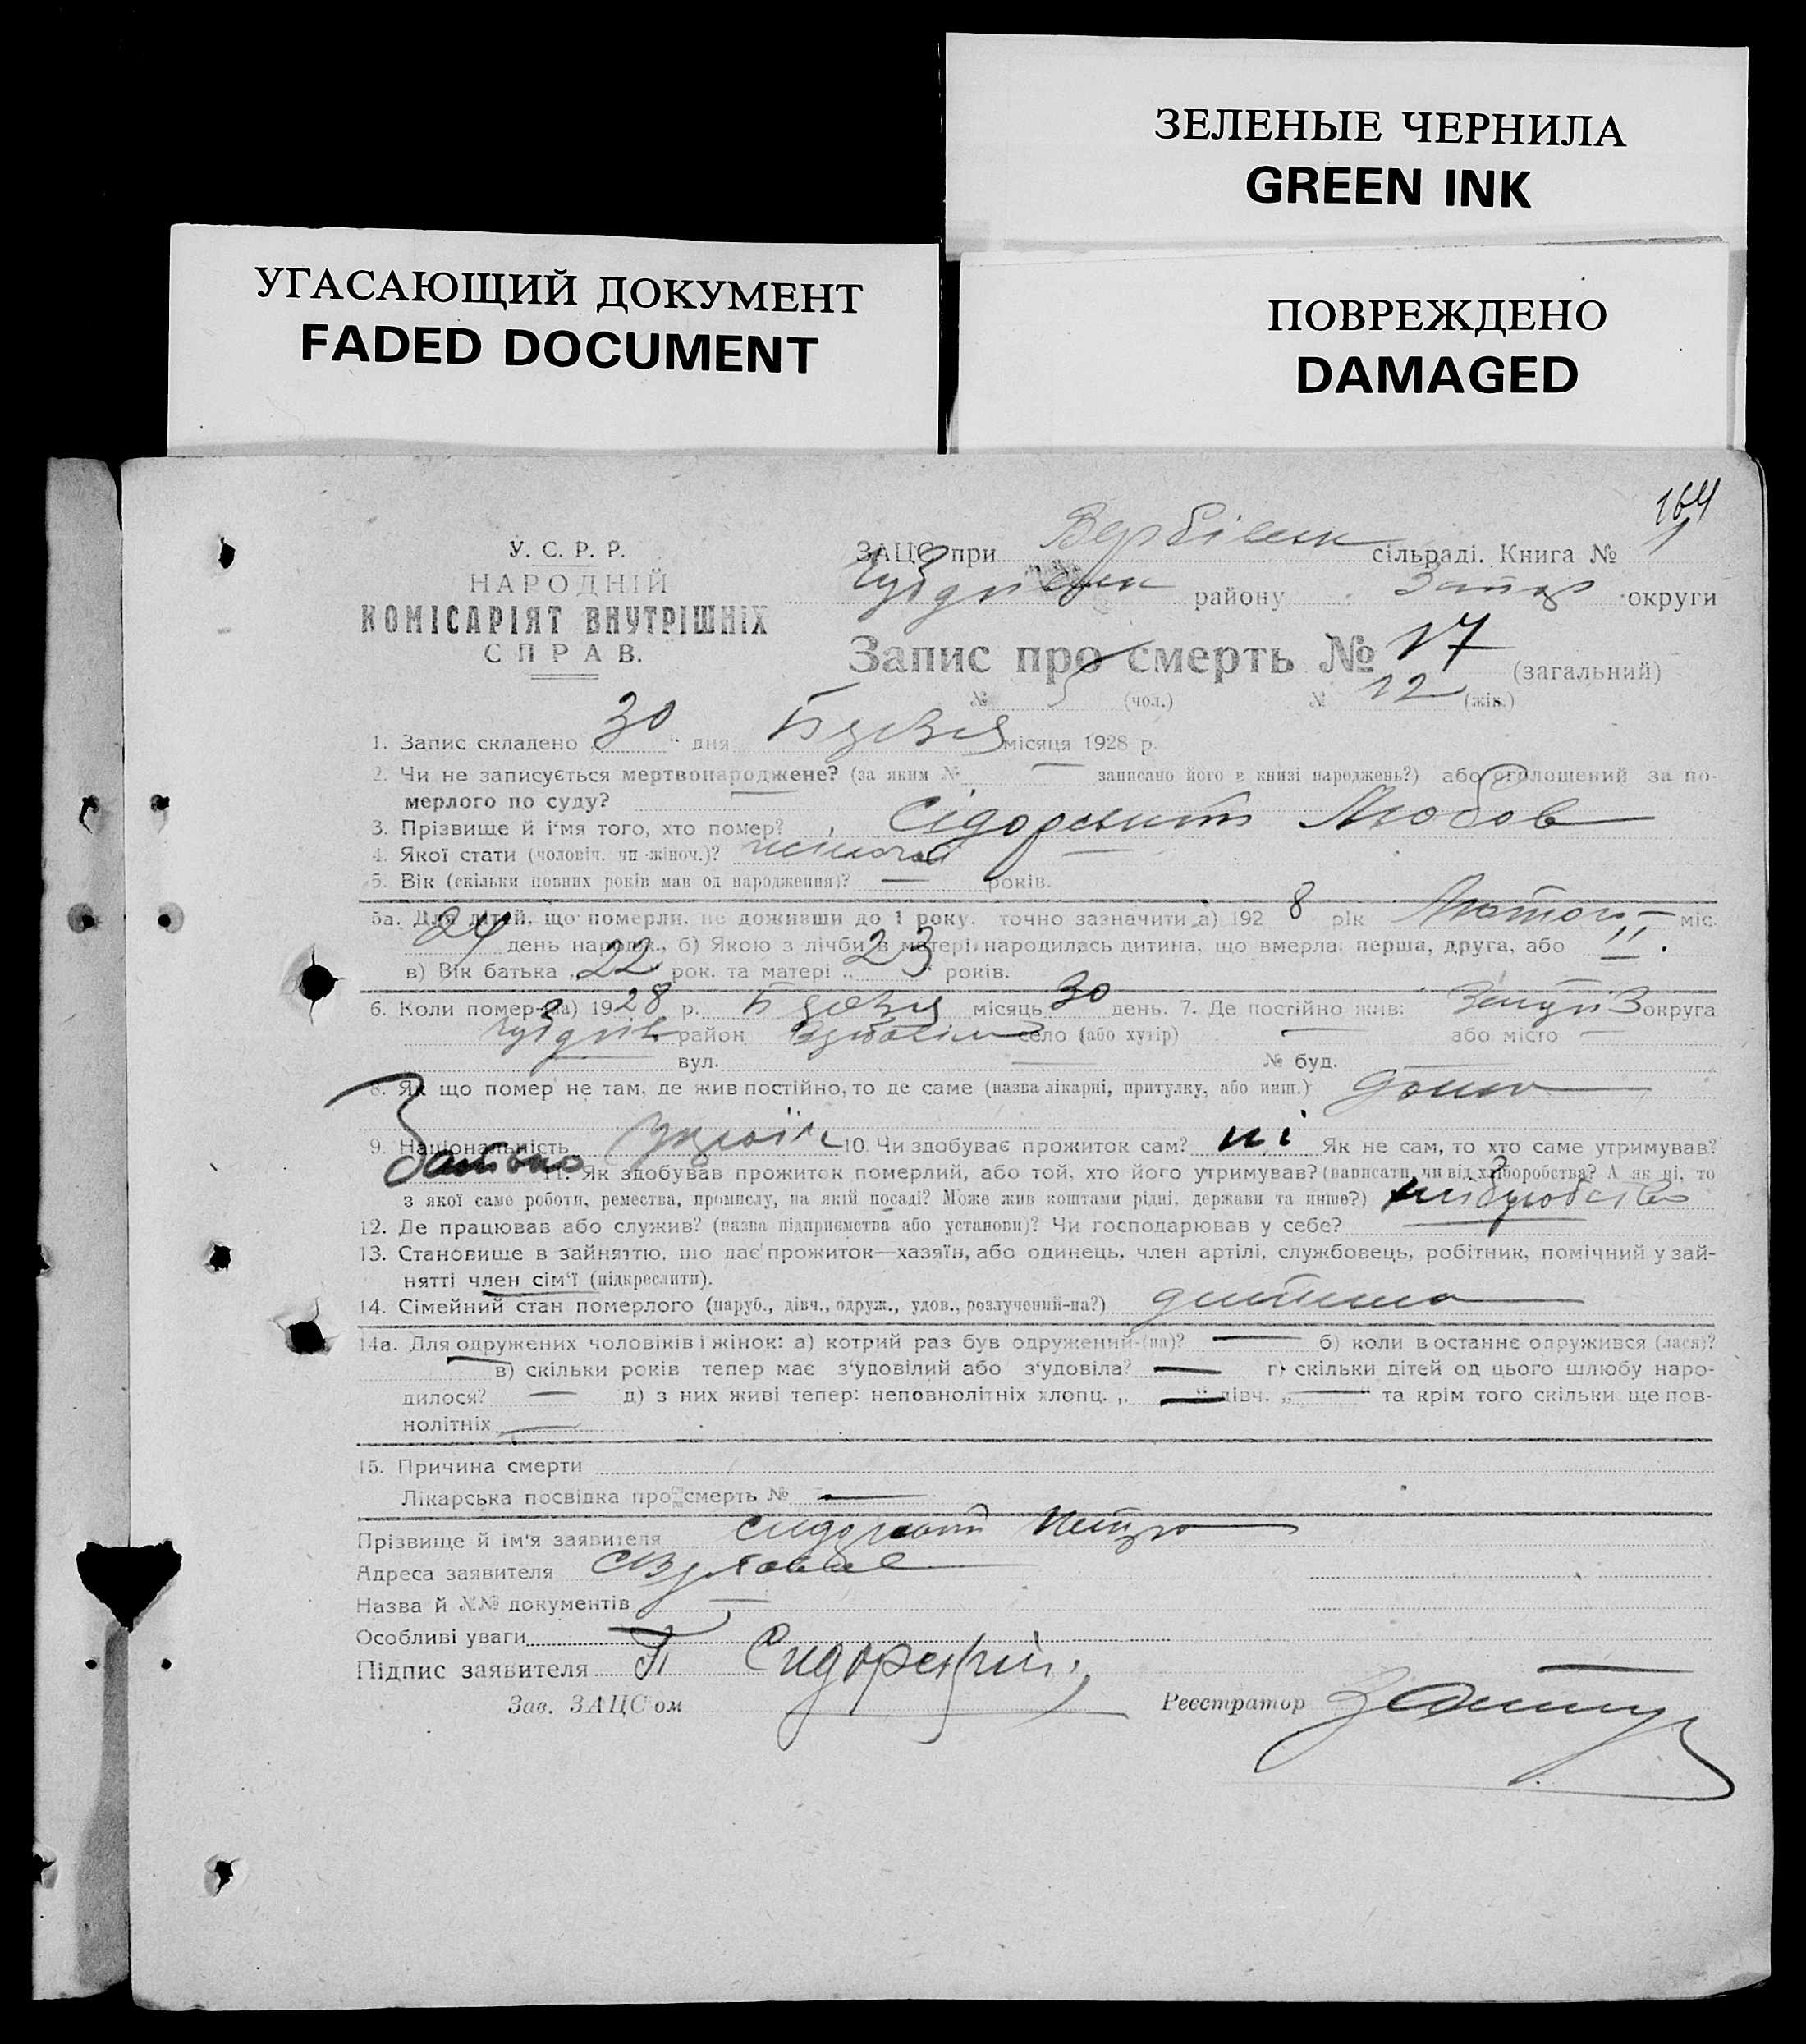 ЗЕЛЕНЫЕ ЧЕРНИЛА
GREEN INK
УГАСАЮЩИЙ ДОКУМЕНТ
FADED DOCUMENT
ПОВРЕЖДЕНО
DAMAGED
164
У. С. Р. Р.
НАРОДНІЙ
КОМІСАРІЯТ ВНУТРІШНІХ
СПРАВ.
ЗАЦС при сільраді. Книга № 1
району округи
Запис про смерть № 17 (загальний)
№ (чол.) № 12 (жін.)
1. Запис складено 30 " дня місяця 1928 р.
2. Чи не записується мертвонароджене? (за яким № — записано його в книзі народжень?) або оголошений за по-
мерлого по суду?
3. Прізвище й ім'я того, хто помер? Любов
4. Якої стати (чоловіч. чи жіноч.)?
5. Вік (скільки повних років мав од народження)? — років.
5а. Для дітей, що померли, не доживши до 1 року, точно зазначити а) 1928 рік Лютого міс.
24 день народж., б) Якою з лічби в матері народилась дитина, що вмерла: перша, друга, або
в) Вік батька „ 22 рок. та матері „ 23 " років.
6. Коли помер(ла) 1928 р. місяць 30 день. 7. Де постійно жив: округа
район село (або хутір) — або місто —
вул. — № буд. —
8. Як що помер не там, де жив постійно, то де саме (назва лікарні, притулку, або инш.) дома
9. Національність 10. Чи здобуває прожиток сам? ні Як не сам, то хто саме утримував?
Батько 11. Як здобував прожиток померлий, або той, хто його утримував? (написати, чи від хліборобства? А як ні, то
з якої саме роботи, ремества, промислу, на якій посаді? Може жив коштами рідні, держави та инше?)
12. Де працював або служив? (назва підприємства або установи)? Чи господарював у себе?
13. Становище в зайняттю, що дає прожиток—хазяїн, або одинець, член артілі, службовець, робітник, помічний у зай-
нятті член сім'ї (підкреслити).
14. Сімейний стан померлого (паруб., дівч., одруж., удов., розлучений-на?) дитина
14а. Для одружених чоловіків і жінок: а) котрий раз був одружений-(на)? — б) коли в останнє одружився (лася)?
— в) скільки років тепер має з'удовілий або з'удовіла? — г) скільки дітей од цього шлюбу наро-
дилося? — д) з них живі тепер: неповнолітніх хлопц. „ — " дівч. „ — " та крім того скільки ще пов-
нолітніх —
15. Причина смерти
Лікарська посвідка про смерть № —
Прізвище й ім'я заявителя Петро
Адреса заявителя
Назва й №№ документів —
Особливі уваги —
Підпис заявителя П
Зав. ЗАЦС'ом Реєстратор